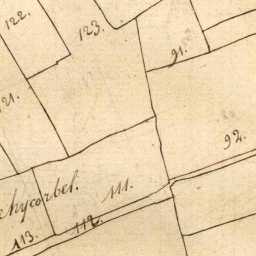 122.
123.
91.
121.
92.
hycorbel.
111.
112.
113.